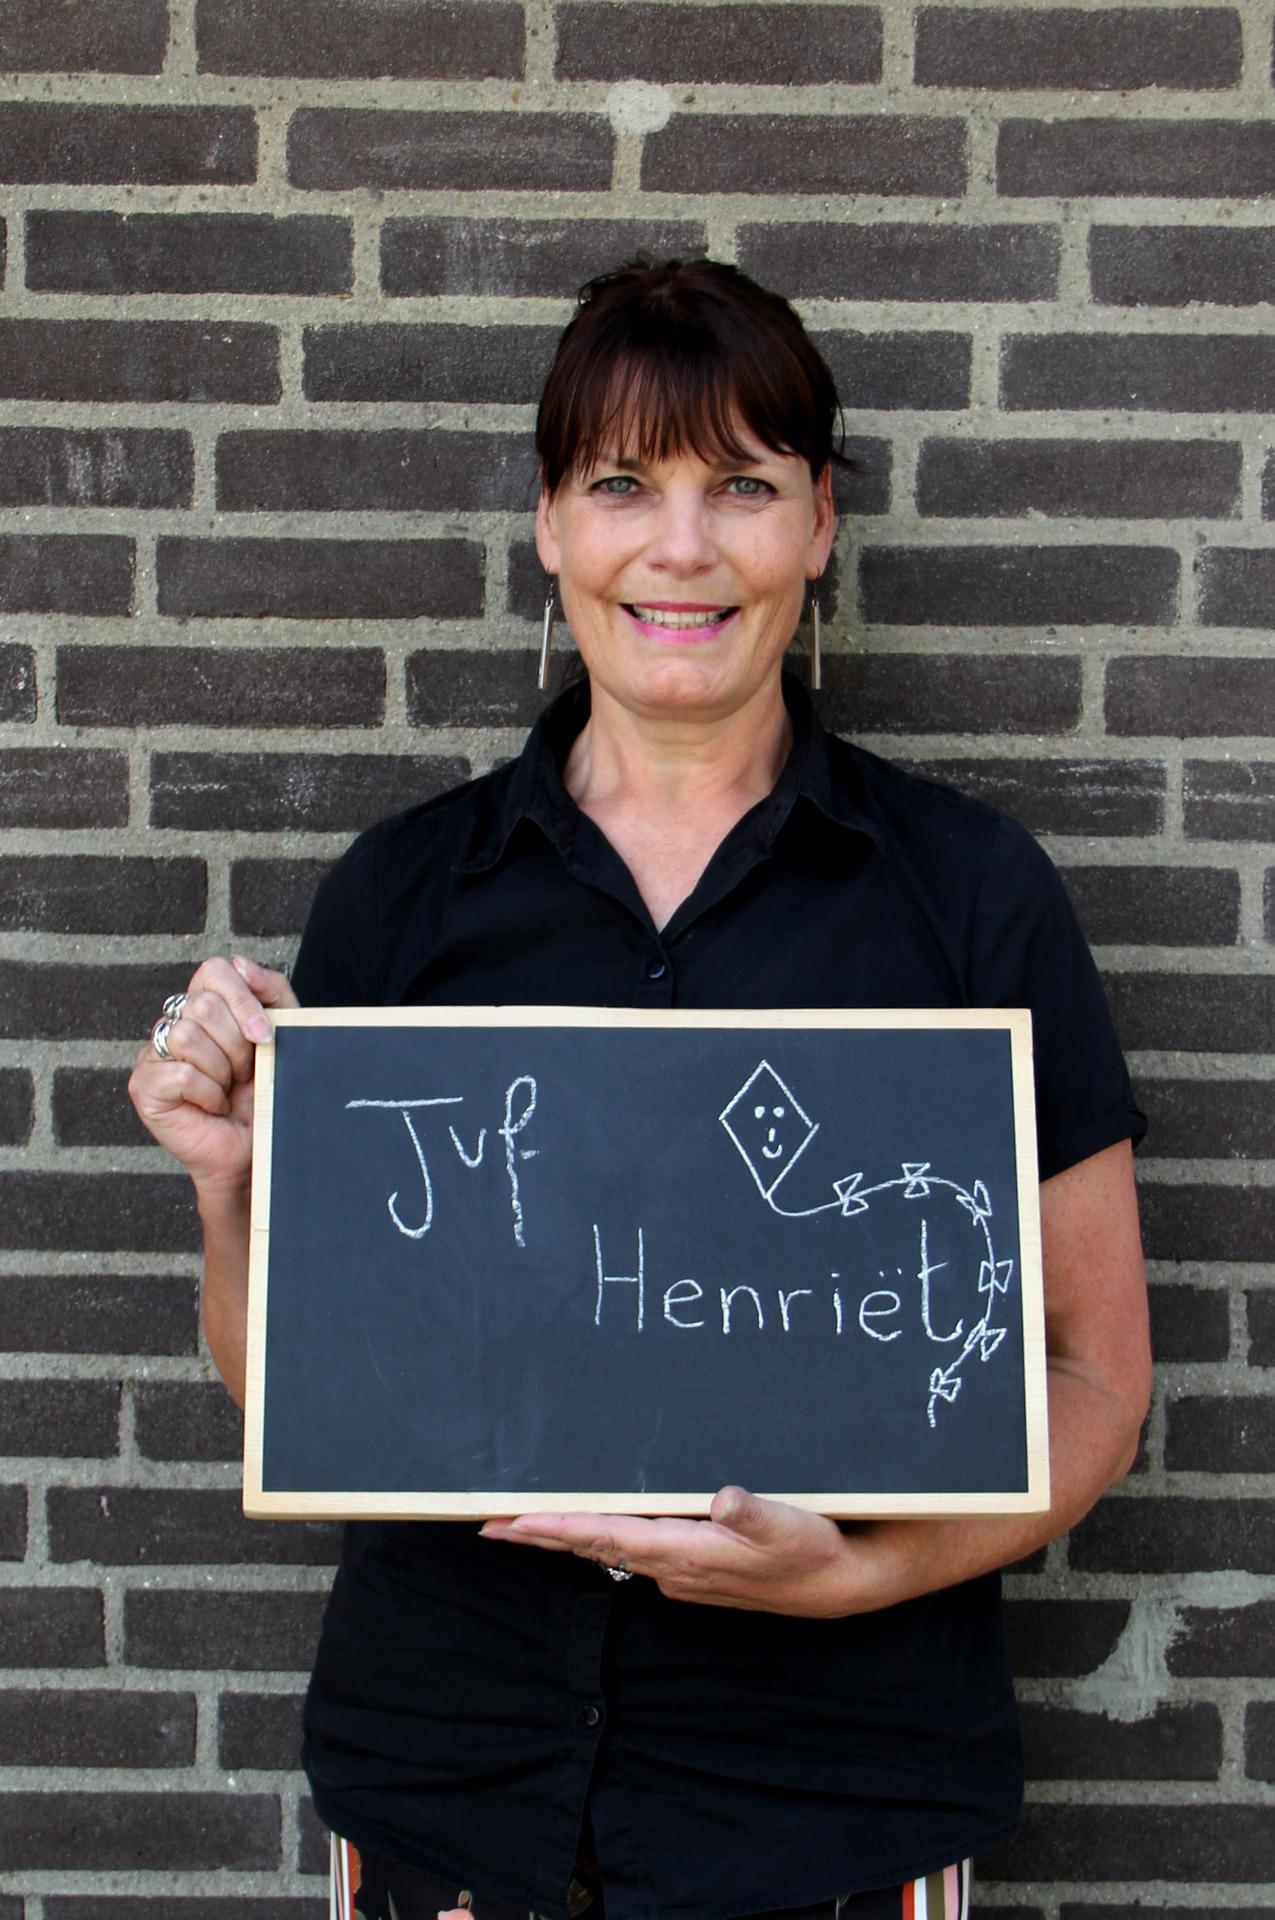 Juf
Henriët